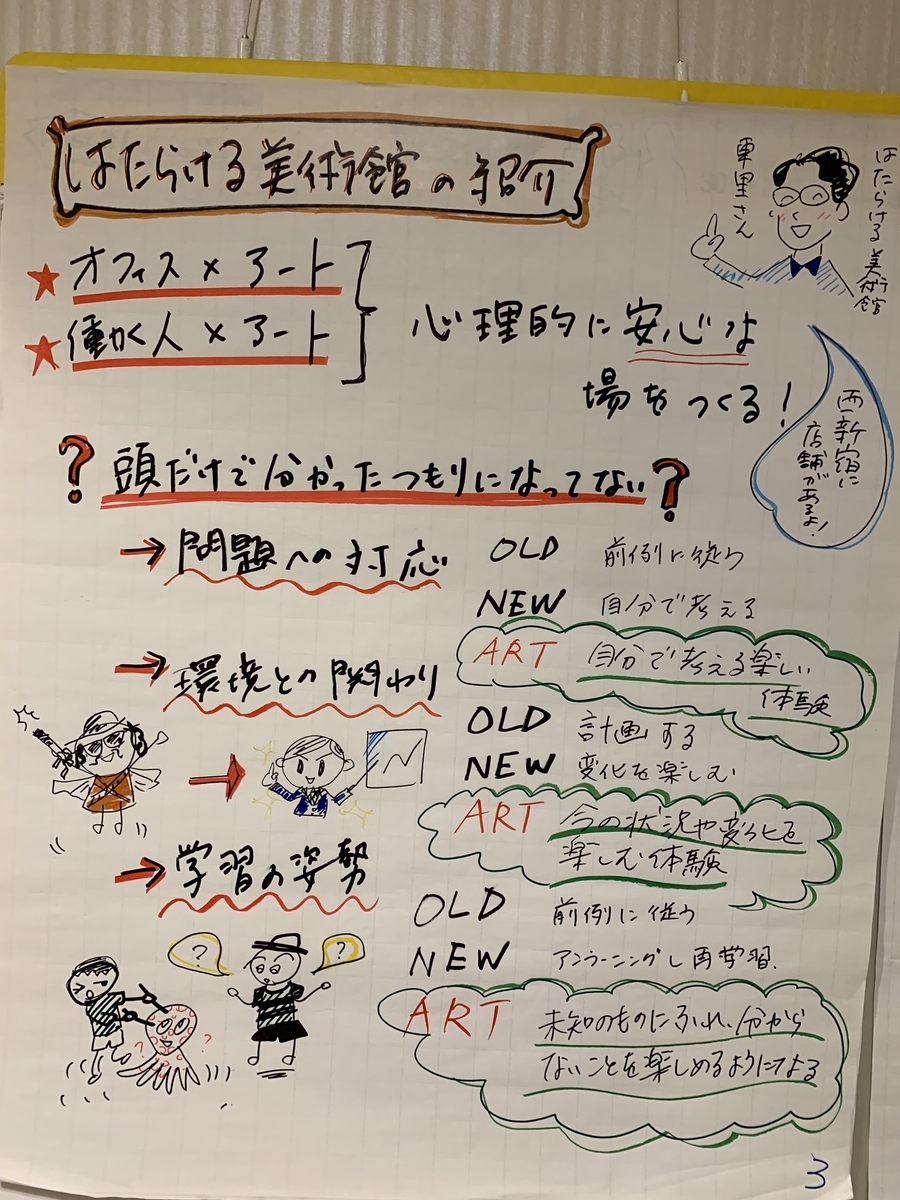 はたらける美術館の紹介
はたらける美術館
栗里さん
西新宿に
店舗があるよ!
★オフィス×アート
★働かく人×アート
心理的に安心な
場をつくる!
?頭だけで分かったつもりになってない?
→問題への対応
OLD 前例に従う
NEW 自分で考える
ART 自分で考える楽しい
体験
→環境との関わり
OLD 計画する
NEW 変化を楽しむ
ART 今の状況や変化を
楽しむ体験
→学習の姿勢
OLD 前例に従う
NEW アンラーニングし再学習.
ART 未知のものにふれ、分から
ないことを楽しめるようになる
?
?
?
?
3